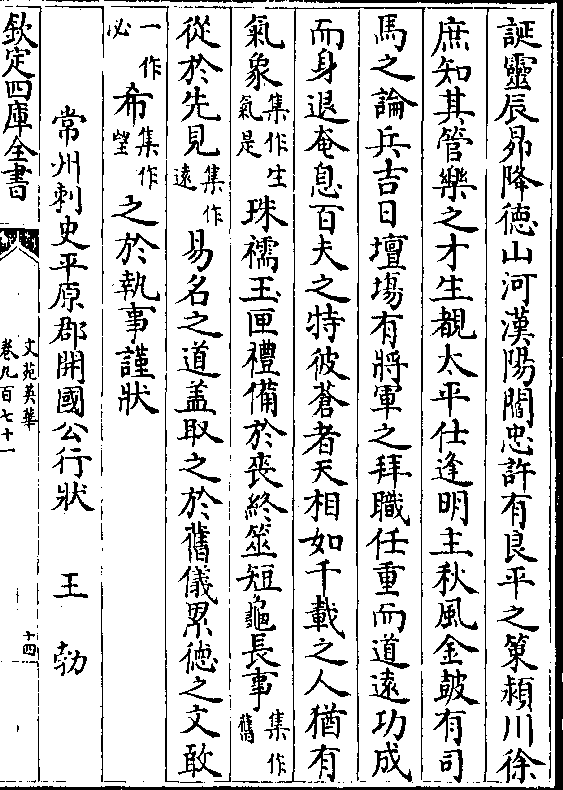 誕靈辰昴降德山河漢陽閻忠許有良平之策潁川徐
庶知其管樂之才生覩太平仕逢明主秋風金鼓有司
馬之論兵吉日壇場有將軍之拜職任重而道遠功成
而身退奄息百夫之特彼蒼者天相如千載之人猶有
氣象集作生氣是珠襦玉匣禮備於喪終筮短龜長事集作舊
從於先見集作遠易名之道蓋取之於舊儀累德之文敢
一作必希集作望之於執事謹狀
常州刺史平原郡開國公行狀 王勃
欽定四庫全書
文苑英華
卷九百七十一
十四